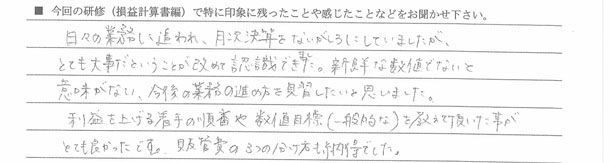 ■ 今回の研修（損益計算書編）で特に印象に残ったことや感じたことなどをお聞かせ下さい。
日々の業務に追われ、月次決算をないがしろにしていましたが、
とても大事だということが改めて認識できた。新鮮な数値でないと
意味がない、今後の業務の進め方を見習したいと思いました。
利益を上げる着手の順番や数値目標（一般的な）を教えて頂いた事が
とても良かったです。販管費の3つの分け方も納得でした。